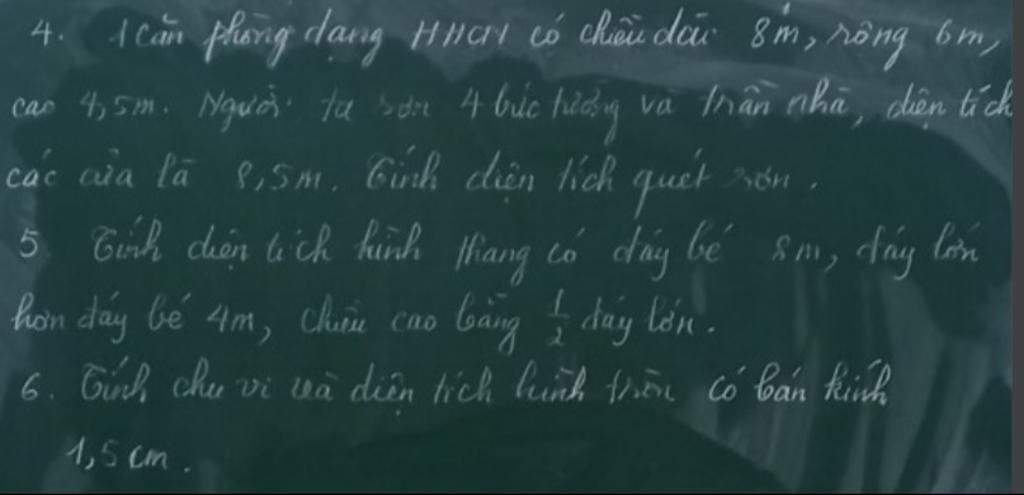 4. 1 căn phòng dạng HHCN có chiều dài 8m, rộng 6m,
cao 4,5m. Người ta sơn 4 bức tường và trần nhà, diện tích
các cửa là 8,5m. Tính diện tích quét sơn.
5 Tính diện tích hình thang có đáy bé 8m, đáy lớn
hơn đáy bé 4m, chiều cao bằng 1/2 đáy lớn.
6. Tính chu vi và diện tích hình tròn có bán kính
1,5 cm.